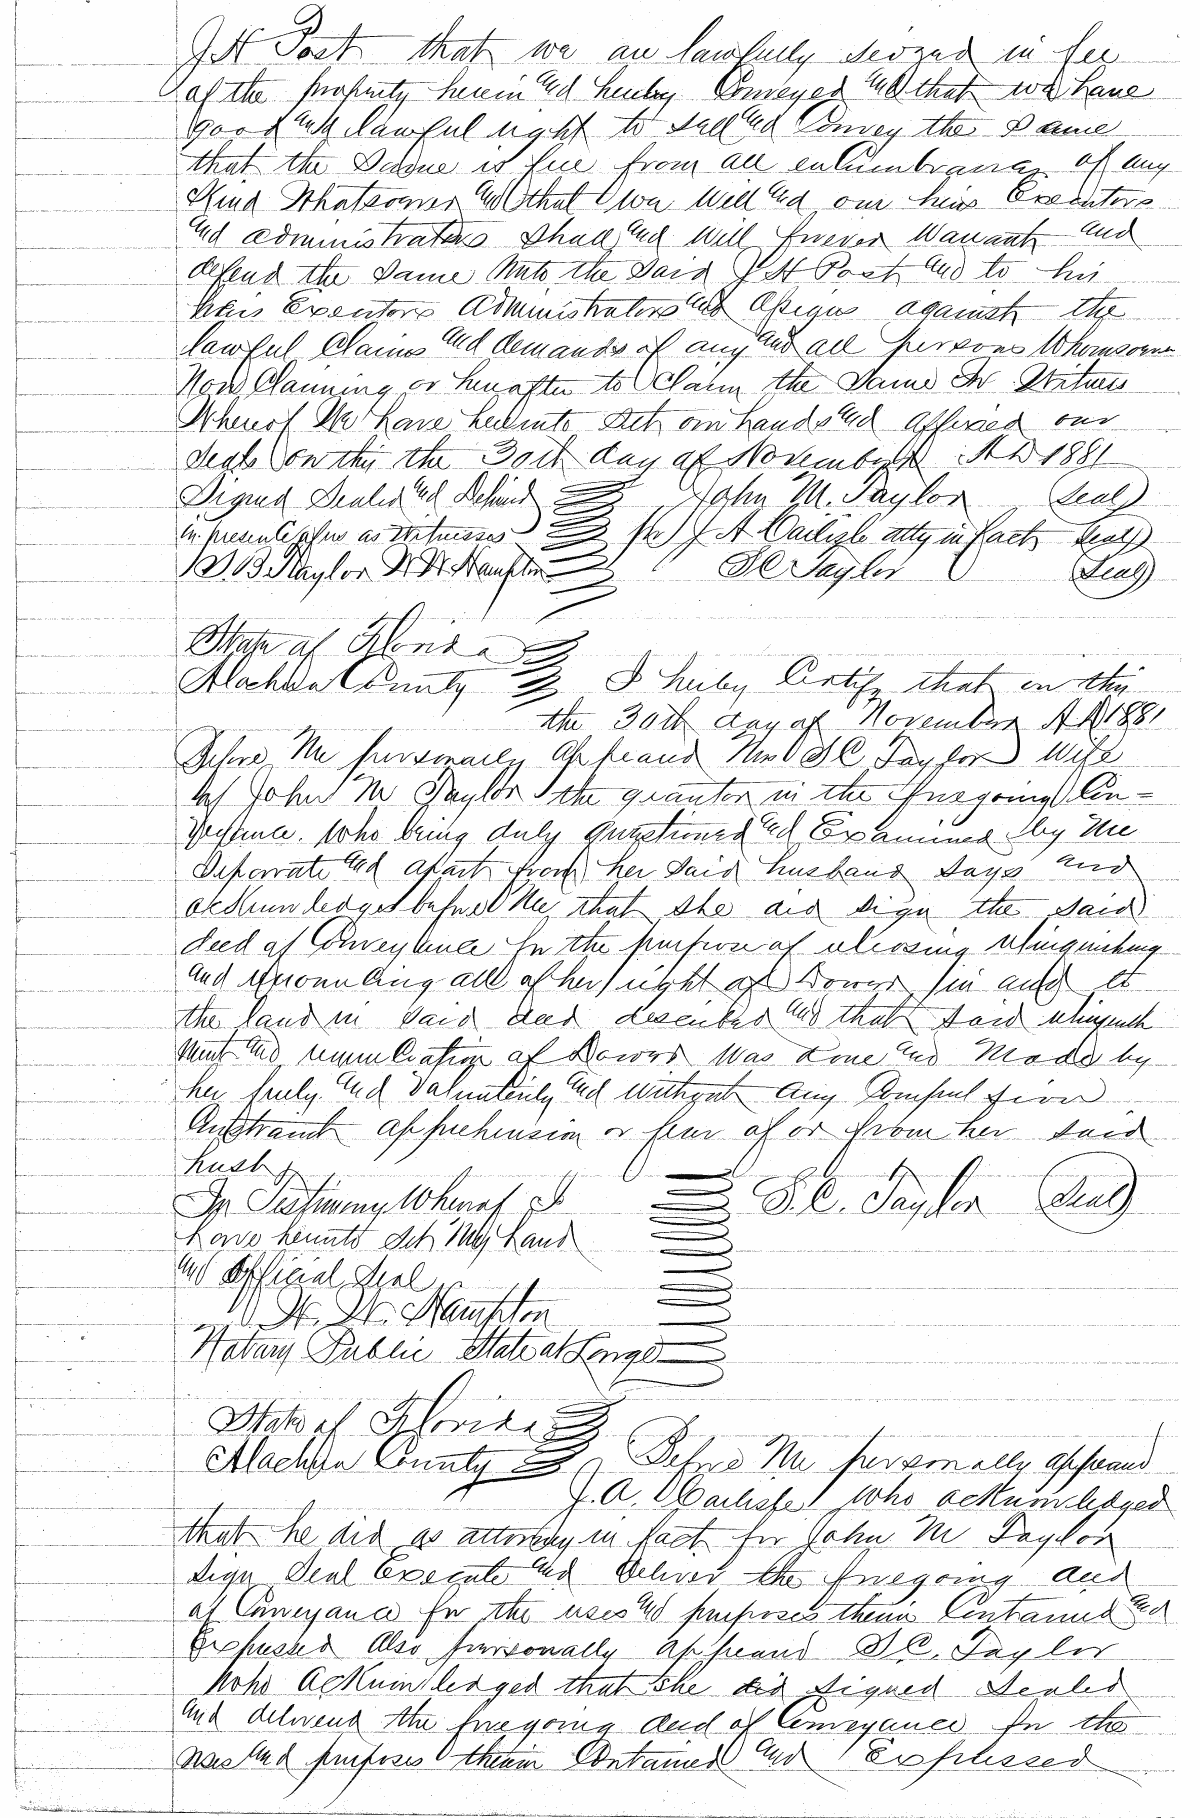 J H Post that we are lawfully seized in fee
of the property herein and hereby Conveyed and that we have
good and lawful right to sell and Convey the Same
that the Same is free from all encumbrance of any
Kind Whatsoever and that we will and our heirs Executors
and administrators Shall and Will forever Warrant and
defend the Same Unto the Said J H Post and to his
heirs Executors Administrators and Assigns against the
lawful Claims and demands of any and all persons Whomsoever
Now Claiming or hereafter to Claim the Same In Witness
Whereof We have hereunto Set our hands and affixed our
Seals on this the 30th day of November A D 1881
Signed Sealed and Delivered John M. Taylor (Seal)
in presence of us as Witnesses per J A Carlisle atty in fact (Seal)
B. Naylor W. W. Hampton S C Taylor (Seal)
State of Florida
Alachua County I hereby Certify that on this
the 30th day of November A D 1881
Before Me personally appeared Mrs S C Taylor Wife
of John M Taylor the grantor in the foregoing Con=
veyance. Who being duly questioned and Examined by Me
Seperate and apart from her Said husband Says and
acknowledges before Me that She did Sign the Said
deed of Conveyance for the purpose of releasing relinquishing
and renouncing all of her right of Dower in and to
the land in Said deed described and that Said relinquish
ment and renunciation of Dower Was done and Made by
her freely and Voluntarily and Without any Compulsion
Constraint apprehension or fear of or from her Said
husb
In Testimony Whereof I S. C. Taylor (Seal)
have hereunto Set My hand
and Official Seal
W. W. Hampton
Notary Public State at Large
State of Florida
Alachua County Before Me personally appeared
J. A. Carlisle who acknowledged
that he did as attorney in fact for John M Taylor
Sign Seal Execute and Deliver the foregoing deed
of Conveyance for the uses and purposes therein Contained and
Expressed Also personally appeared S C. Taylor
Who acknowledged that She did Signed Sealed
and delivered the foregoing deed of Conveyance for the
uses and purposes therein Contained and Expressed